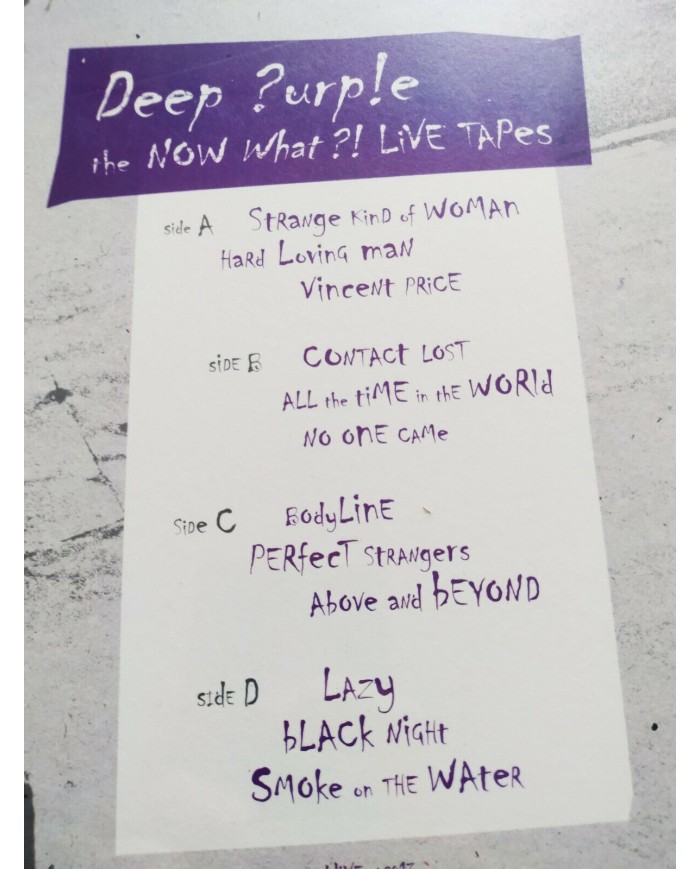 Deep ?urp!e
the NOW What?! LiVE TAPes
side A StRANge KinD of WOMAn
HaRd LovinG maN
VinceNt PRiCE
siDE B CONTACt LOST
ALL the tiME in thE WORld
NO OnE CAMe
SiDe C BodyLinE
PERfecT StRANgers
Above and bEYOND
sIdE D LAzy
bLACk NiGHt
SMoke on THE WAteR